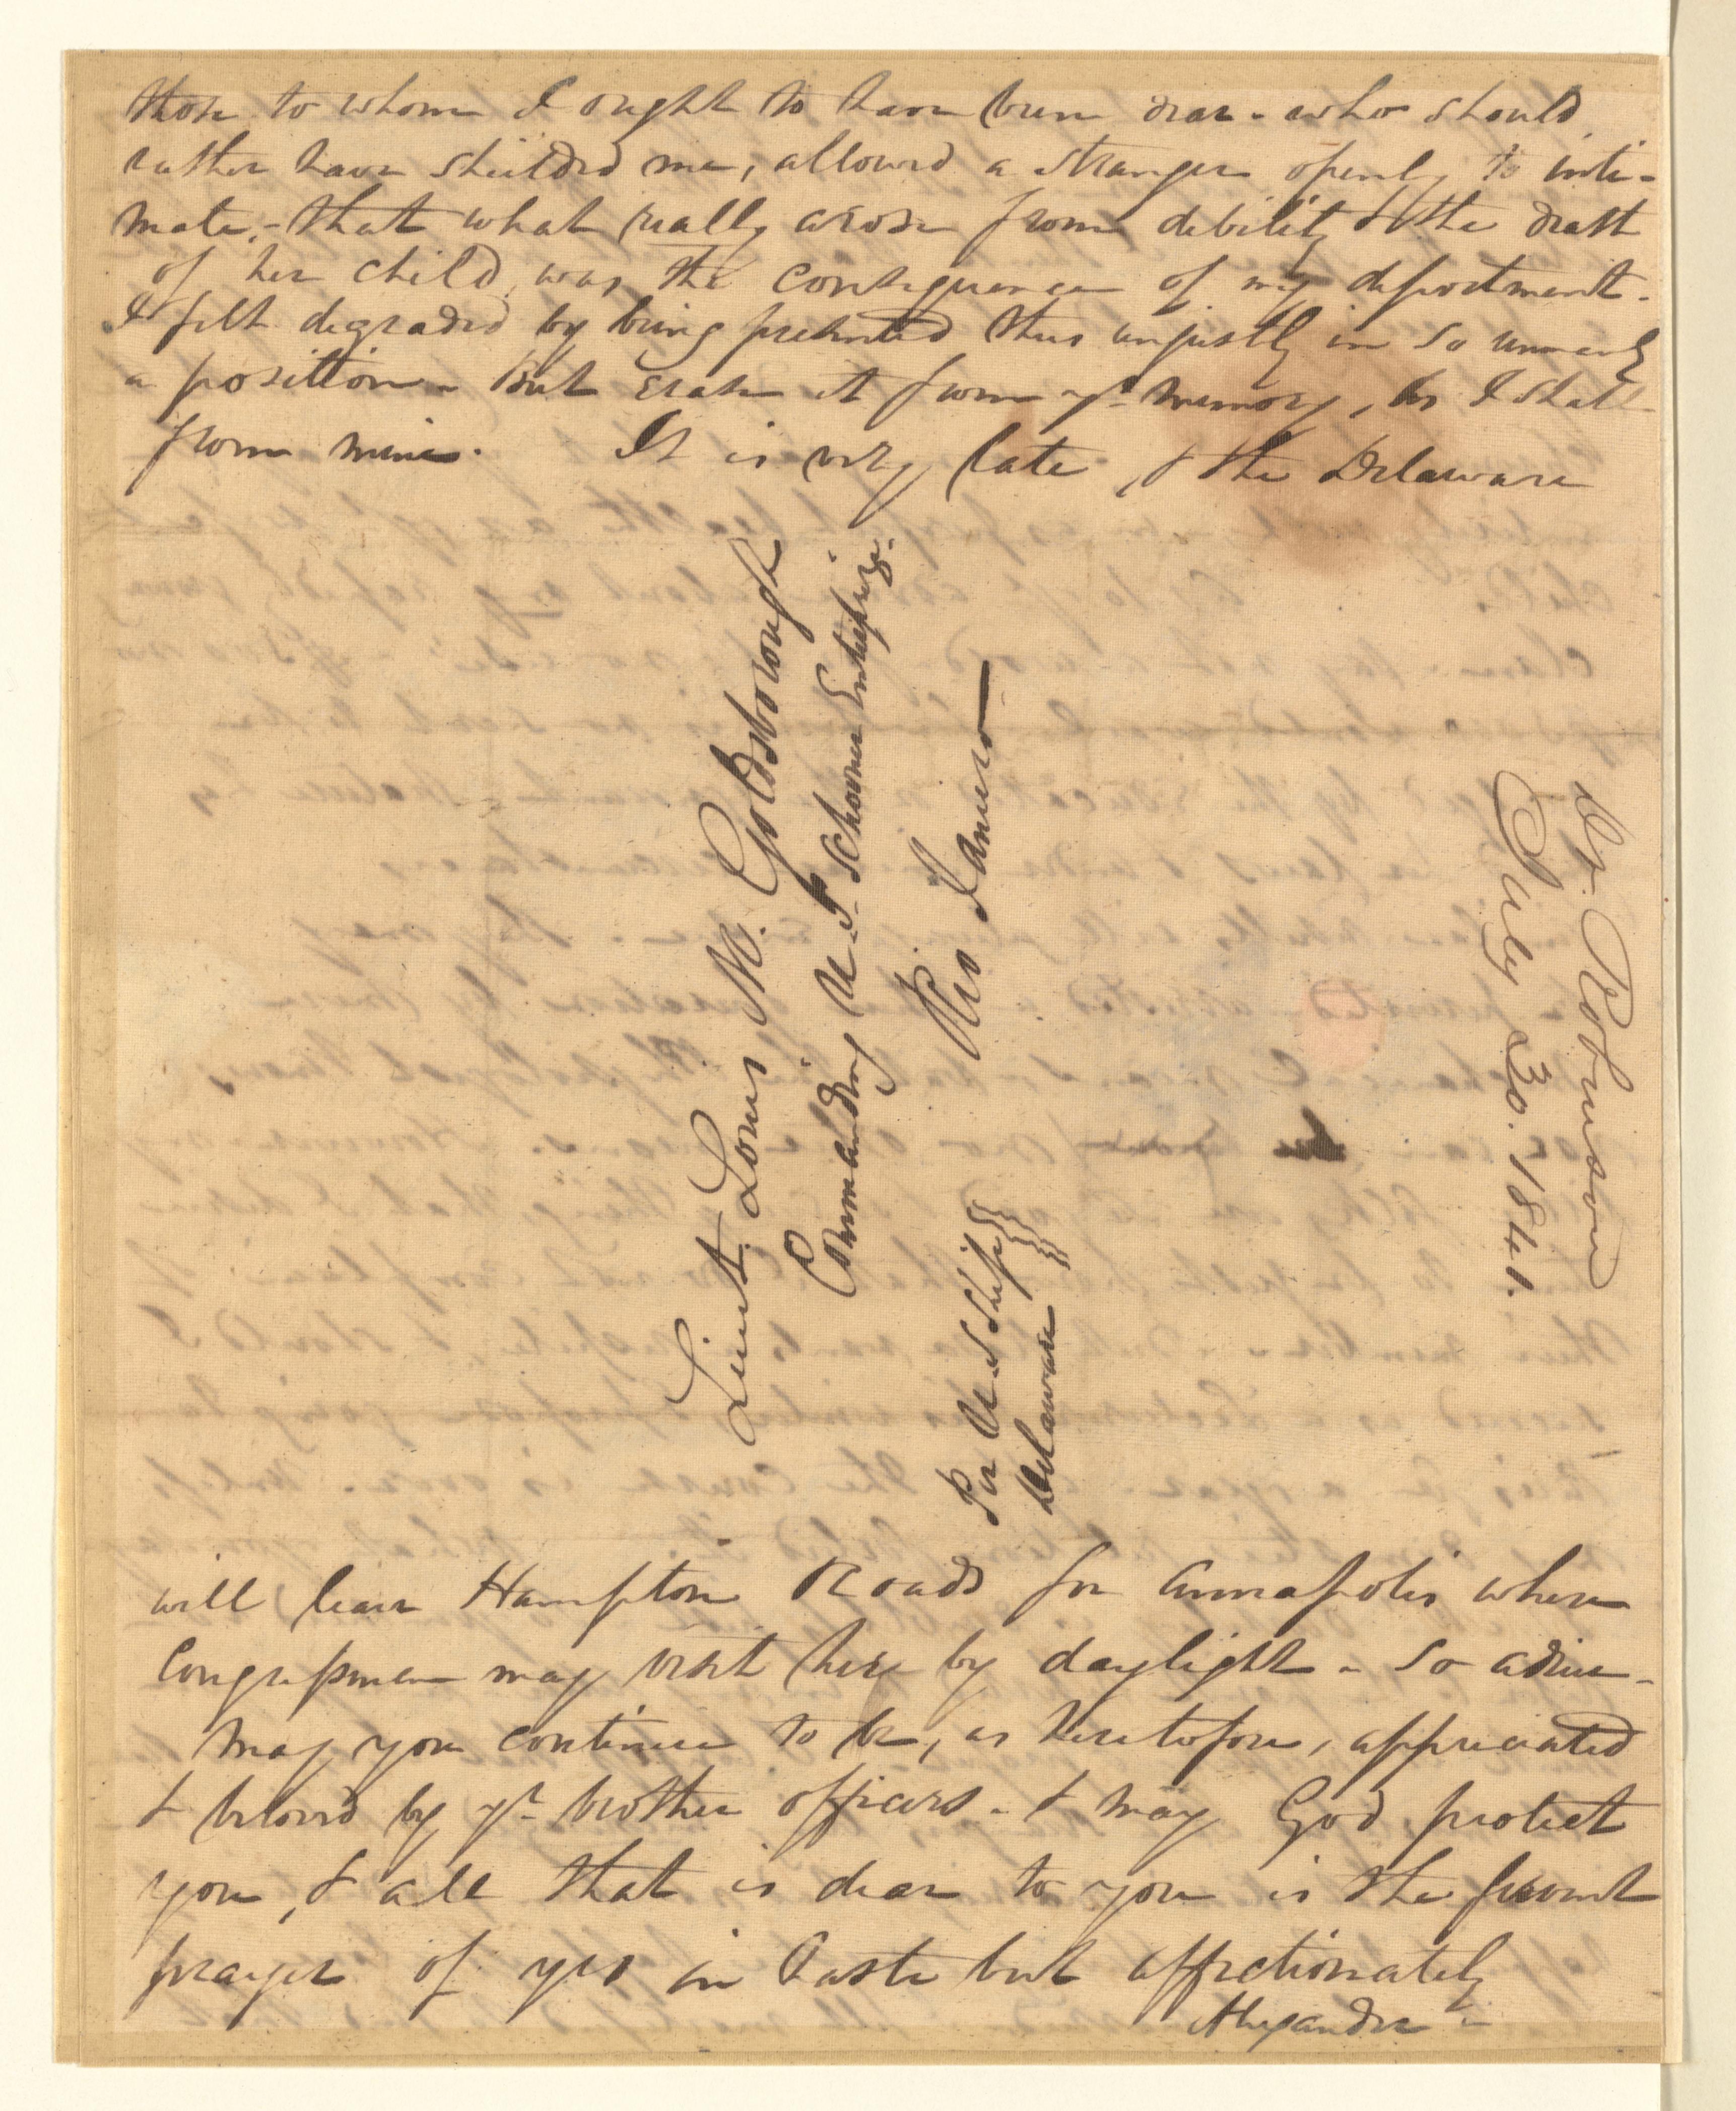 those to whom I ought to have been dear - who should
rather have sheilded me, allowed a stranger openly to inti-
mate, - that what really arose from debility & the death
of her child, was the consequence of my deportment.
I felt degraded by being presented thus unjustly in so unmanly
a position - But erase it from yr memory, as I shall
from mine. It is very late, & the Delaware
Lieut. Louis M. Goldsborough
Commanding U. S. Schooner Enterprize.
Rio Janeiro
Per U S Ship
Delaware
Dr. Robinson
July 20. 1841.
will leave Hampton Roads for Annapolis where
Congressmen may visit her by daylight - So adieu -
May you continue to be, as heretofore, appreciated
& beloved by yr brother officers - & may God protect
you, & all that is dear to you is the fervent
prayer of yrs in haste but affectionately
Alexander -